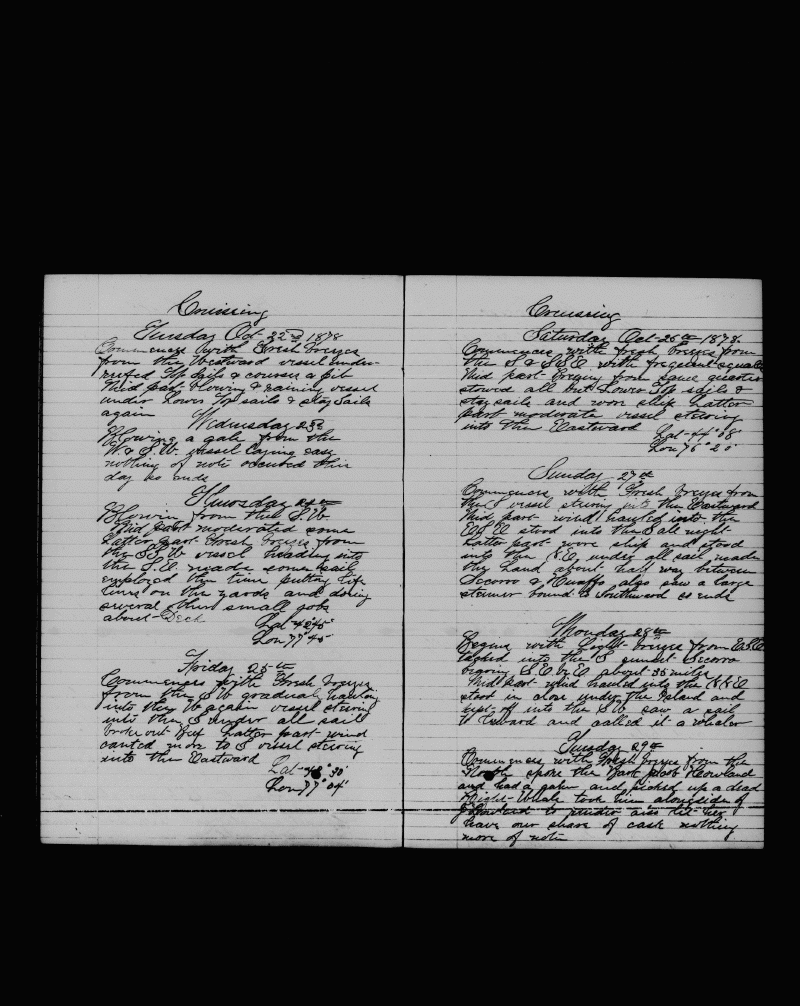 Cruising
Tuesday Oct 22nd 1878
Commences with Fresh breezes
from the Westward vessel under
reefed Top sails & courses a bit
Mid part blowing & raining vessel
under Lower Top sails & stay sails
again
Wednesday 23d
Blowing a gale from the
W.S.W. vessel laying easy
nothing of note occured this
day so ends
Thursday 24th
Blowing from the S.W
Mid part moderated some
Latter part Fresh breezes from
the S.S.W vessel heading into
the S.E. made some sail
employed the time putting life
lines on the yards and doing
several other small jobs
about Deck
Lat 42°45'
Lon 77°45'
Friday 25th
Commences with Fresh breezes
from the S.W gradual hauling
into the W again vessel steering
into the S under all sail
broke out Beef Latter part wind
canted more to S vessel steering
into the Eastward
Lat 30'
Lon 77° 04'
Cruising
Saturday Oct 26th 1878
Commences with fresh breezes from
the S & S.S.E with frequent squalls
Mid part breezes from same quarter
stowed all but Lower Top sails &
stay sails and wore ship Latter
part moderate vessel steering
into the Eastward
Lat 44° 08'
Lon 76° 20'
Sunday 27th
Commences with Fresh breezes from
the S vessel steering into the Eastward
Mid part wind hauled into the
stood into the S all night
Latter part wore ship and stood
into the N.E. under all sail made
the Land about half way between
Socorro & Huaffo also saw a large
steamer bound to Southward so ends
Monday 28th
Begins with Light breezes from E.S.E
tacked into the S sunset Socorro
bearing S.E. by E about 35 miles
Mid part wind hauled into the N.N.E
stood in close under the Island and
kept off into the S.W saw a sail
to Leward and called it a whaler
Tuesday 29th
Commences with Fresh breezes from the
North spoke the Bark Jacob Howland
and had a gam and picked up a dead
Right Whale took him alongside of
J Howland to render aid
have our share of cask nothing
more of note